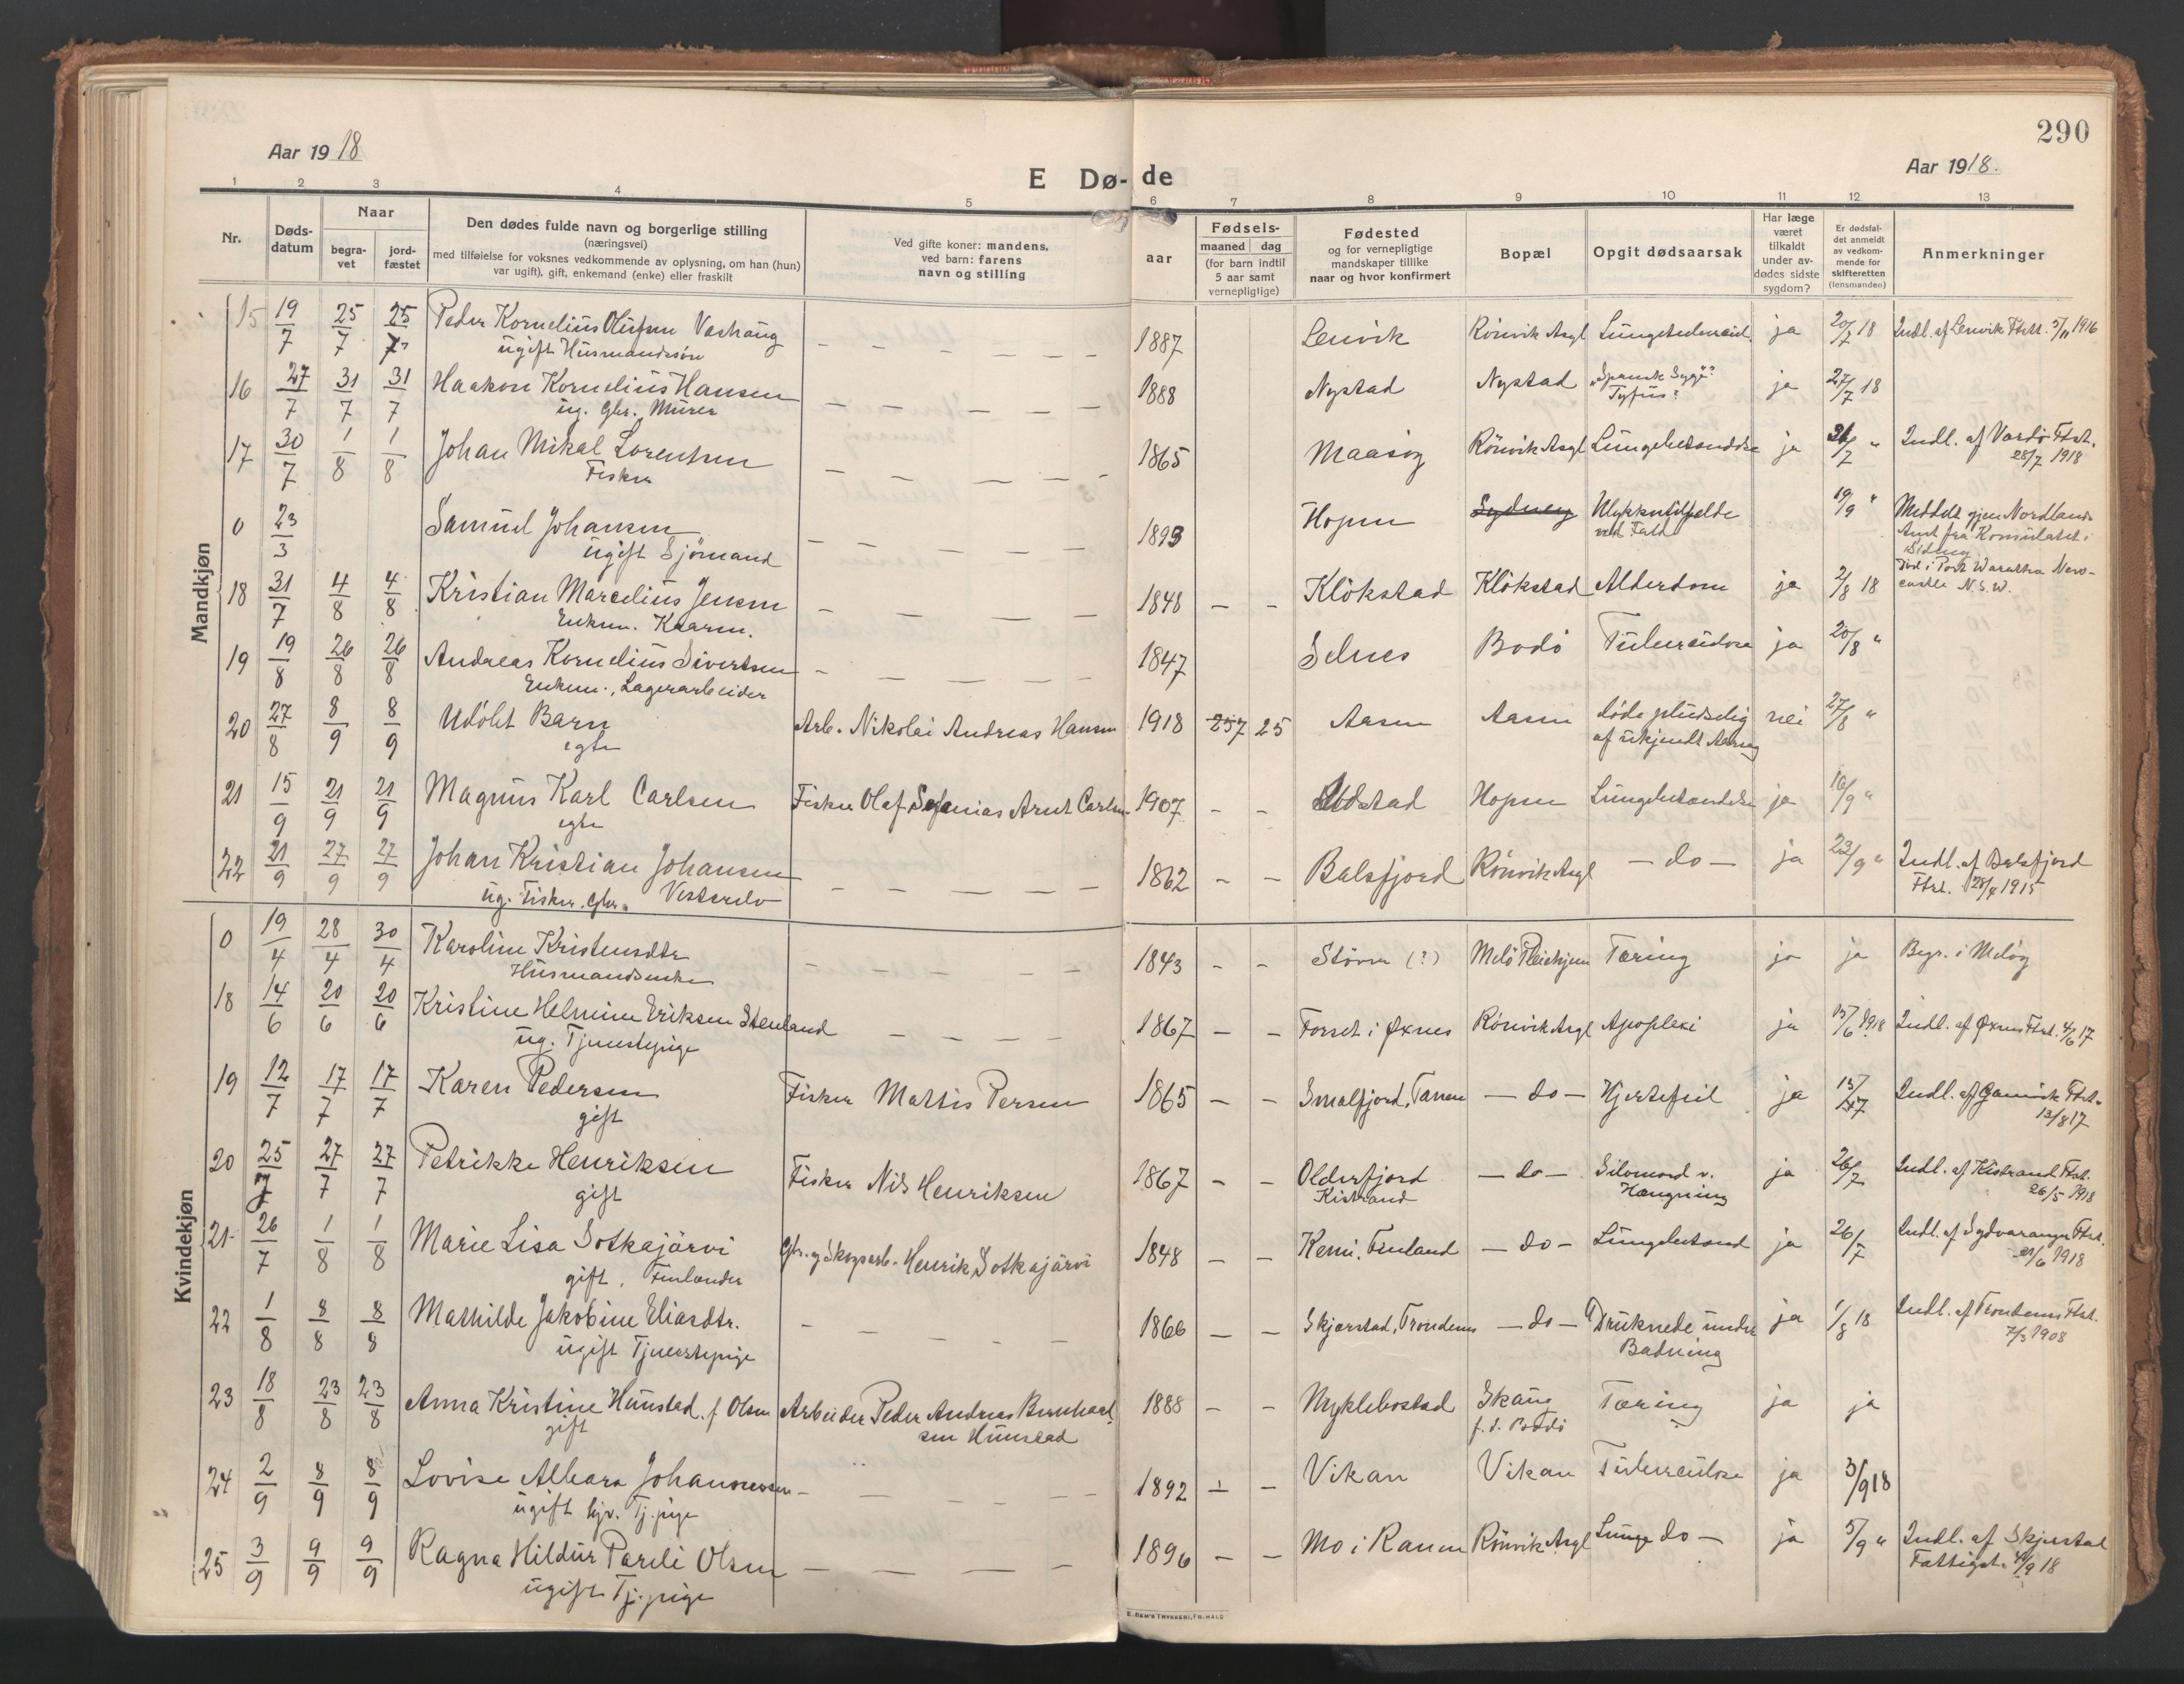 290
Aar 1918
Aar 1918.
E Dø- de
1 2 3 4 5 6 7 8 9 10 11 12 13
Nr.
Døds-
datum
Naar
begra-
vet
jord-
fæstet
Den dødes fulde navn og borgerlige stilling
(næringsvei)
med tilføielse for voksnes vedkommende av oplysning, om han (hun)
var ugift), gift, enkemand (enke) eller fraskilt
Ved gifte koner: mandens,
ved barn: farens
navn og stilling
aar
Fødsels-
maaned dag
(for barn indtil
5 aar samt
vernepligtige)
Fødested
og for vernepligtige
mandskaper tillike
naar og hvor konfirmert
Bopæl
Opgit dødsaarsak
Har læge
været
tilkaldt
under av-
dødes sidste
sygdom?
Er dødsfal-
det anmeldt
av vedkom-
mende for
skifteretten
(lensmanden)
Anmerkninger
Mandkjøn
15 19/7 25/7 25/7 Peder Kornelius Olufsen 1887 Lenvik Rönvik Asyl ja 20/7 18 Indl. af Lenvik Ftst. 5/11 1916
ugift Husmandssön
16 27/7 31/7 31/7 Haakon Kornelius Hansen — — — — — 1888 Nystad Nystad "Spansk Syge"? ja 27/7 18
ug. Gbr. Murer Tyfus?
17 30/7 1/8 1/8 Johan Mikal Lorentsen — — — — — 1865 Maasöy Rönvik Asyl Lungebetændelse ja 31/7 " Indl. af Vardö Ftst.
Fisker 28/7 1918
0 23/3 Samuel Johansen — — — — — 1893 Hopen Sydney Ulykkestilfælde 19/9 " Meddelt gjen Nordlands
ugift Sjömand ved Fald Amt fra Konsulatet i
Sidney
Död i Port Waratha New-
castle N.S.W.
18 31/7 4/8 4/8 Kristian Marcelius Jensen — — — — 1848 — — Klökstad Klökstad Alderdom ja 2/8 18
Enkem. Kaarm.
19 19/8 26/8 26/8 Andreas Kornelius Sivertsen — — — — — 1847 Selnes Bodö Tuberculose ja 20/8 "
Enkem., Lagerarbeider
20 27/8 8/9 8/9 Udöbt Barn Arb. Nikolai Andreas Hansen 1918 7 25 Aasen Aasen döde pludselig nei 27/8 "
egte af ukjendt Aarsag
21 15/9 21/9 21/9 Magnus Karl Carlsen Fisker Olaf Sefanias Arnt Carlsen 1907 — — Hopen Lungebetændelse ja 16/9 "
egte
22 21/9 27/9 27/9 Johan Kristian Johansen — — — — — 1862 — — Balsfjord Rönvik Asyl — do — ja 23/9 " Indl. af Balsfjord
ug. Fisker. Gbr. Vesterelv Ftst. 1915
Kvindekjøn
0 19/4 28/4 30/4 Karoline Kristensdtr — — — — — 1843 — — Stören (?) Melö Pleiehjem Tæring ja ja Begr. i Melöy
Husmandsenke
18 14/6 20/6 20/6 Kristine Helmine Eriksen Stenland — — — — 1867 — — Forset i Øxnes Rönvik Asyl Apoplexi ja 15/6 1918 Indl. af Øxnes Ftst. 4/6 17
ug. Tjenestepige
19 12/7 17/7 17/7 Karen Pedersen Fisker Mattis Persen 1865 — — Smalfjord, Tanen — do — Hjertefeil ja 13/7 Indl. af Gamvik Ftst.
gift 13/8 17
20 25/7 27/7 27/7 Petrikke Henriksen Fisker Nils Henriksen 1867 — — Olderfjord — do — Silvmord v. ja 26/7 Indl. af Kistrand Ftst.
gift Kistrand Hængning 26/5 1918
21 26/7 1/8 1/8 Marie Lisa Sotkajärvi Gbr. og Skogsarb. Henrik Sotkajärvi 1848 — — Kemi, Finland — do — Lungebetænd ja 26/7 Indl. af Sydvaranger Ftst.
gift, Finlænder 1918
22 1/8 8/8 8/8 Mathilde Jakobine Eliasdtr. — — — — — 1866 — — Skjærstad, Trondenes — do — Druknede under ja 1/8 18 Indl. af Trondenes Ftst.
ugift Tjenestepige Badning 7/3 1908
23 18/8 23/8 23/8 Anna Kristine Hunstad f. Olsen Arbeider Peder Andreas Bernhard- 1888 — — Myklebostad Skaug Tæring ja ja
gift sen Hunstad f. t. Bodö
24 2/9 8/9 8/9 Lovise Albara Johannessen — — — — — 1892 — — Vikan Vikan Tuberculose ja 3/9 18
ugift hjv. Tj.pige
25 3/9 9/9 9/9 Ragna Hildur Pareli Olsen — — — — 1896 — — Mo i Ranen Rönvik Asyl Lunge do — ja 5/9 " Indl. af Skjerstad
ugift Tj.pige Fattigst. 4/9 18
E. SEM'S TRYKKERI, FR.HALD